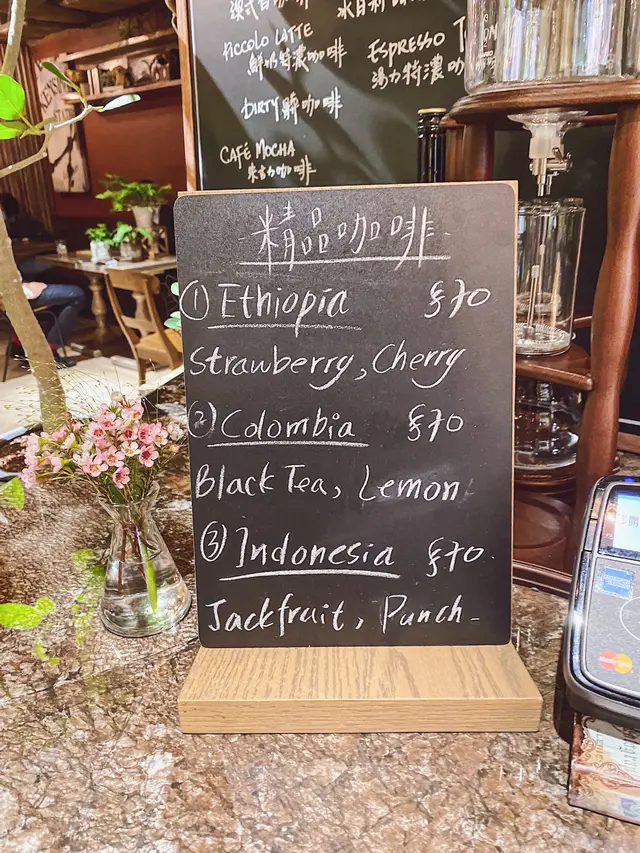 PICCOLO LATTE
鮮奶特濃咖啡
ESPRESSO
湯力特濃咖
DIRTY 髒咖啡
CAFÉ MOCHA
朱古力咖啡
精品咖啡
① Ethiopia $70
Strawberry, Cherry
② Colombia $70
Black Tea, Lemon
③ Indonesia $70
Jackfruit, Punch